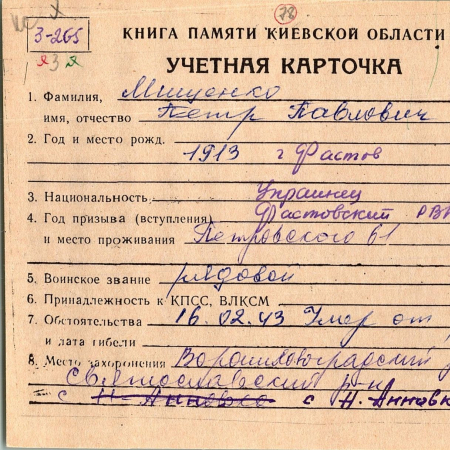 78
КНИГА ПАМЯТИ КИЕВСКОЙ ОБЛАСТИ
3-265
я 3 я
УЧЕТНАЯ КАРТОЧКА
1. Фамилия, Мищенко
имя, отчество Петр Павлович
2. Год и место рожд.
1913 г Фастов
3. Национальность Украинец
4. Год призыва (вступления) Фастовский РВК
и место проживания Петровского 61
5. Воинское звание рядовой
6. Принадлежность к КПСС, ВЛКСМ
7. Обстоятельства 16.02.43 Умер от
и дата гибели
8. Место захоронения Ворошиловградский
Святославский р-н
с Н-Анновка с Н-Анновк